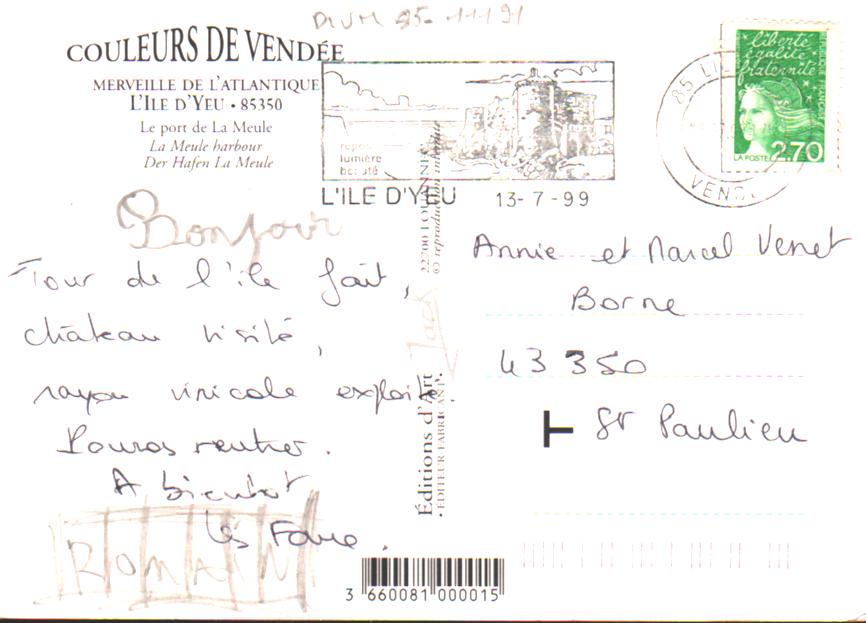 DIVM 85-1191
COULEURS DE VENDÉE
MERVEILLE DE L'ATLANTIQUE
L'ILE D'YEU • 85350
Le port de La Meule
La Meule harbour
Der Hafen La Meule
repos
lumière
beauté
L'ILE D'YEU 13-7-99
85 L'IL
VEND
liberté
égalité
fraternité
RÉPUBLIQUE FRANÇAISE
LA POSTE 2,70
Bonjour
Tour de l'île fait,
château visité,
rayon vinicole exploité.
Pouvos rentrer.
A bientôt
Les Faure.
ROMAIN
Éditions d'Art Jack
• EDITEUR FABRICANT •
22700 LOUANNEC
© reproduction interdite
Annie et Marcel Venet
Borne
43 350
T St Paulien
3 660081 000015